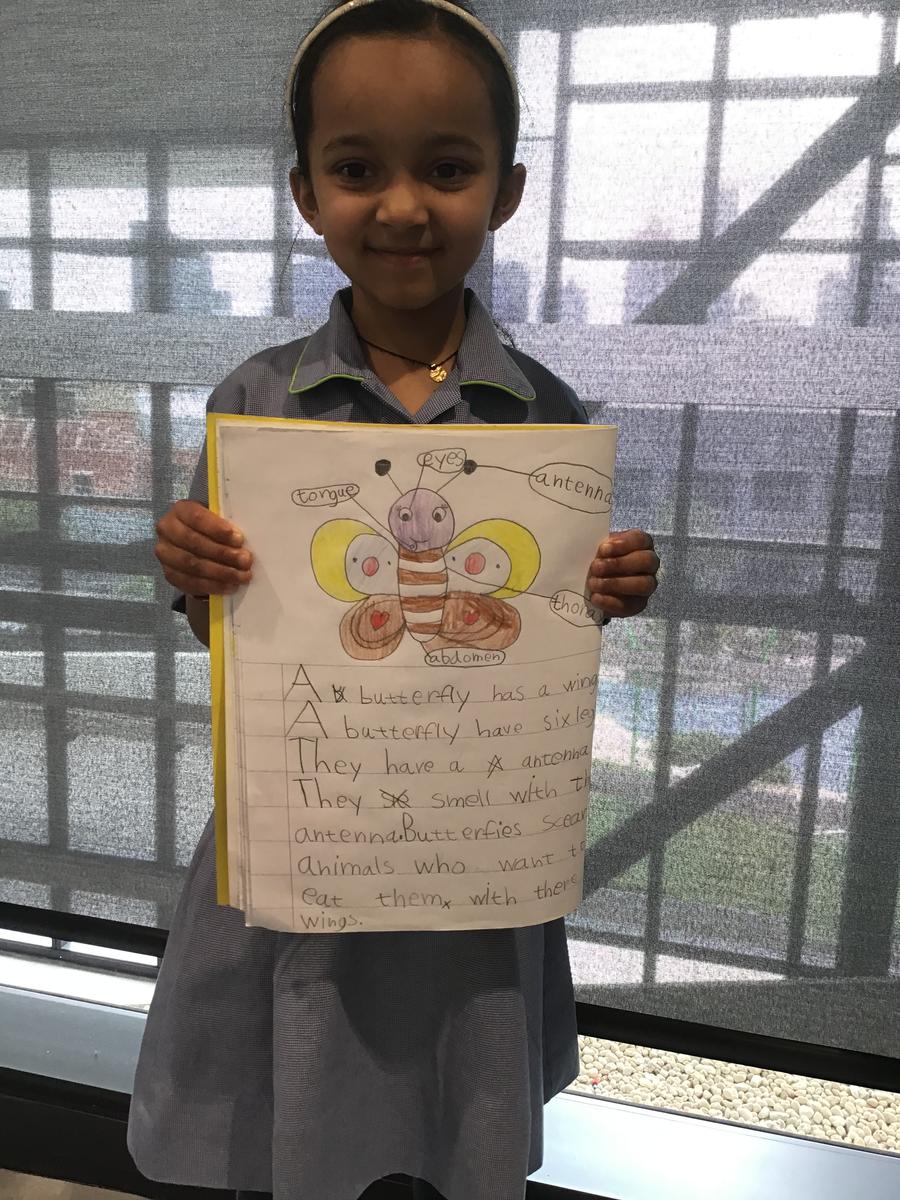 eyes
antenna
tongue
thora
abdomen
A butterfly has a wing
A butterfly have six leg
They have a antenna
They smell with th
antenna.Butterfies scear
animals who want to
eat them with there
wings.